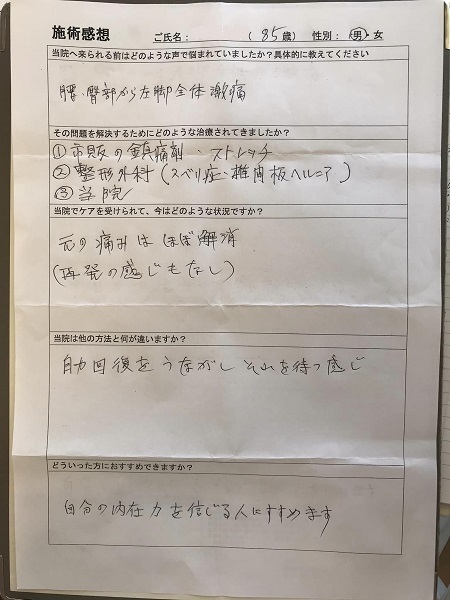 施術感想 ご氏名： （85歳） 性別：男・女
当院へ来られる前はどのような声で悩まれていましたか？具体的に教えてください
腰・臀部から左脚全体激痛
その問題を解決するためにどのような治療されてきましたか？
①市販の鎮痛剤・ストレッチ
②整形外科（スベリ症・椎間板ヘルニア）
③当院
当院でケアを受けられて、今はどのような状況ですか？
元の痛みはほぼ解消
（再発の感じもなし）
当院は他の方法と何が違いますか？
自力回復をうながしそれを待つ感じ
どういった方におすすめできますか？
自分の内在力を信じる人にすすめます